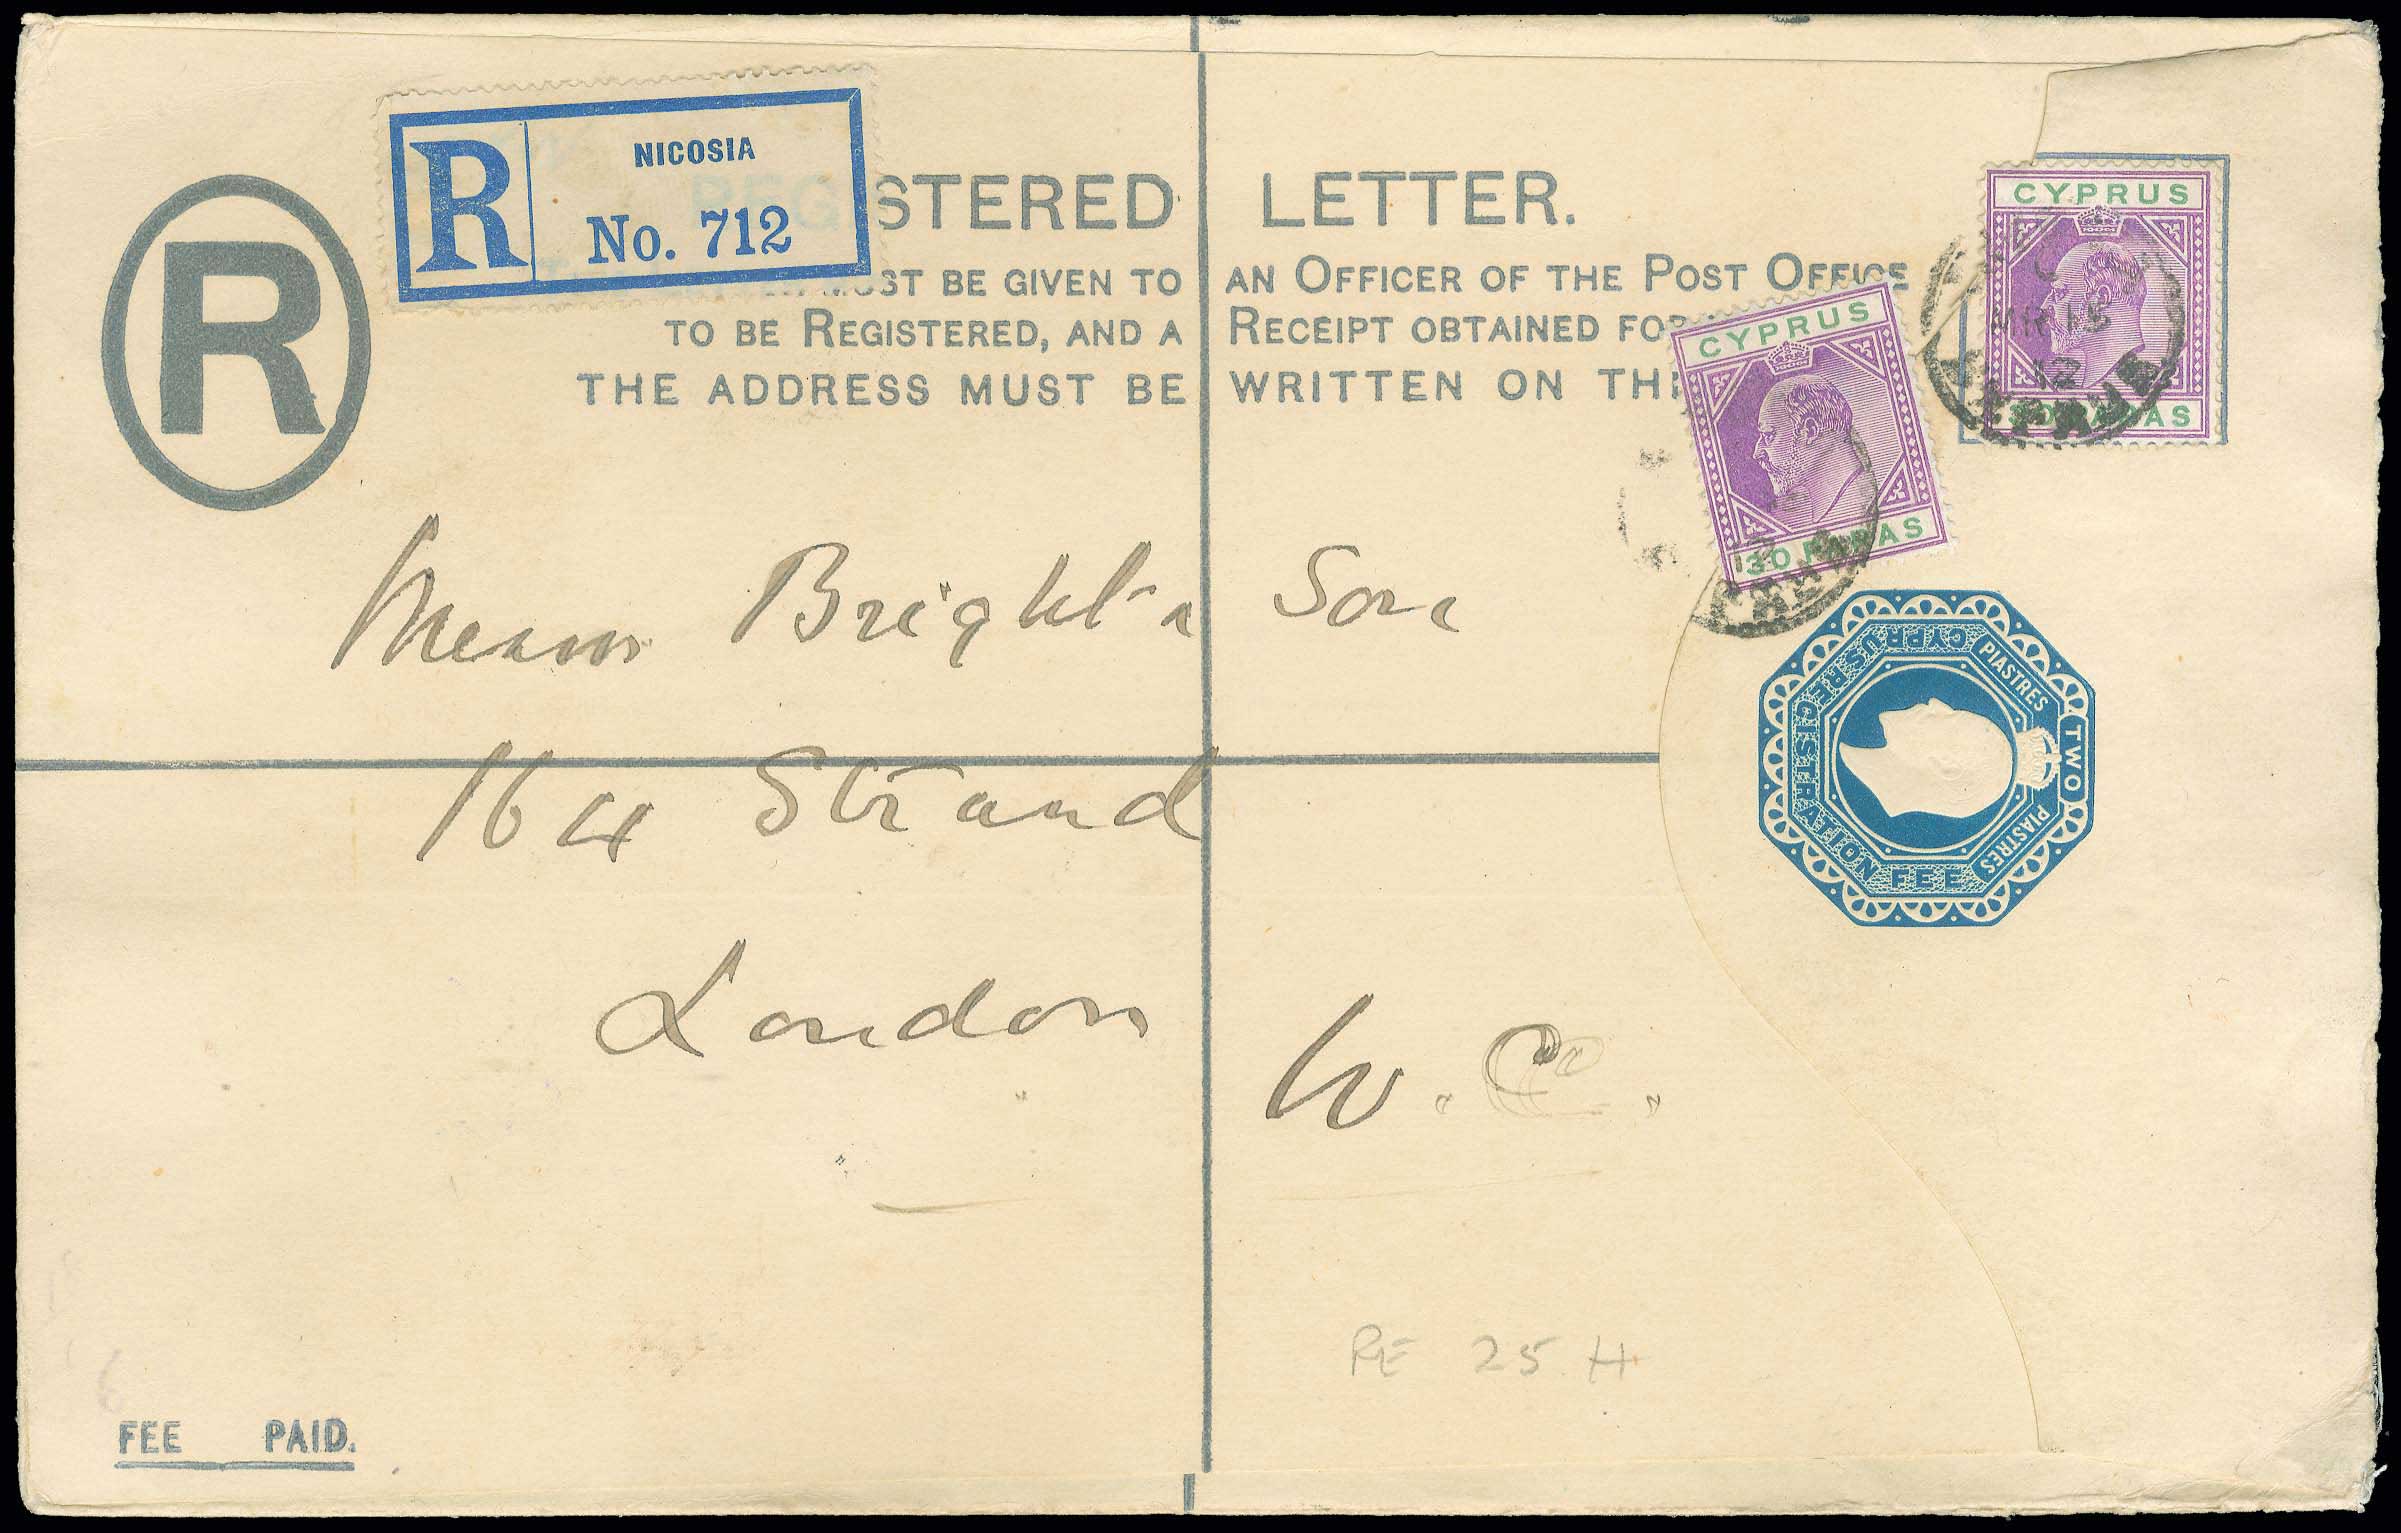 R
NICOSIA
No. 712
R
REGISTERED LETTER.
MUST BE GIVEN TO AN OFFICER OF THE POST OFFICE
TO BE REGISTERED, AND A RECEIPT OBTAINED FOR
THE ADDRESS MUST BE WRITTEN ON THI
CYPRUS
30 PARAS
CYPRUS
30 PARAS
MR 15
12
Messrs Bright & Son
164 Strand
London W.C.
CYPRUS REGISTRATION FEE
TWO
PIASTRES
PIASTRES
RE 25 H
FEE PAID.